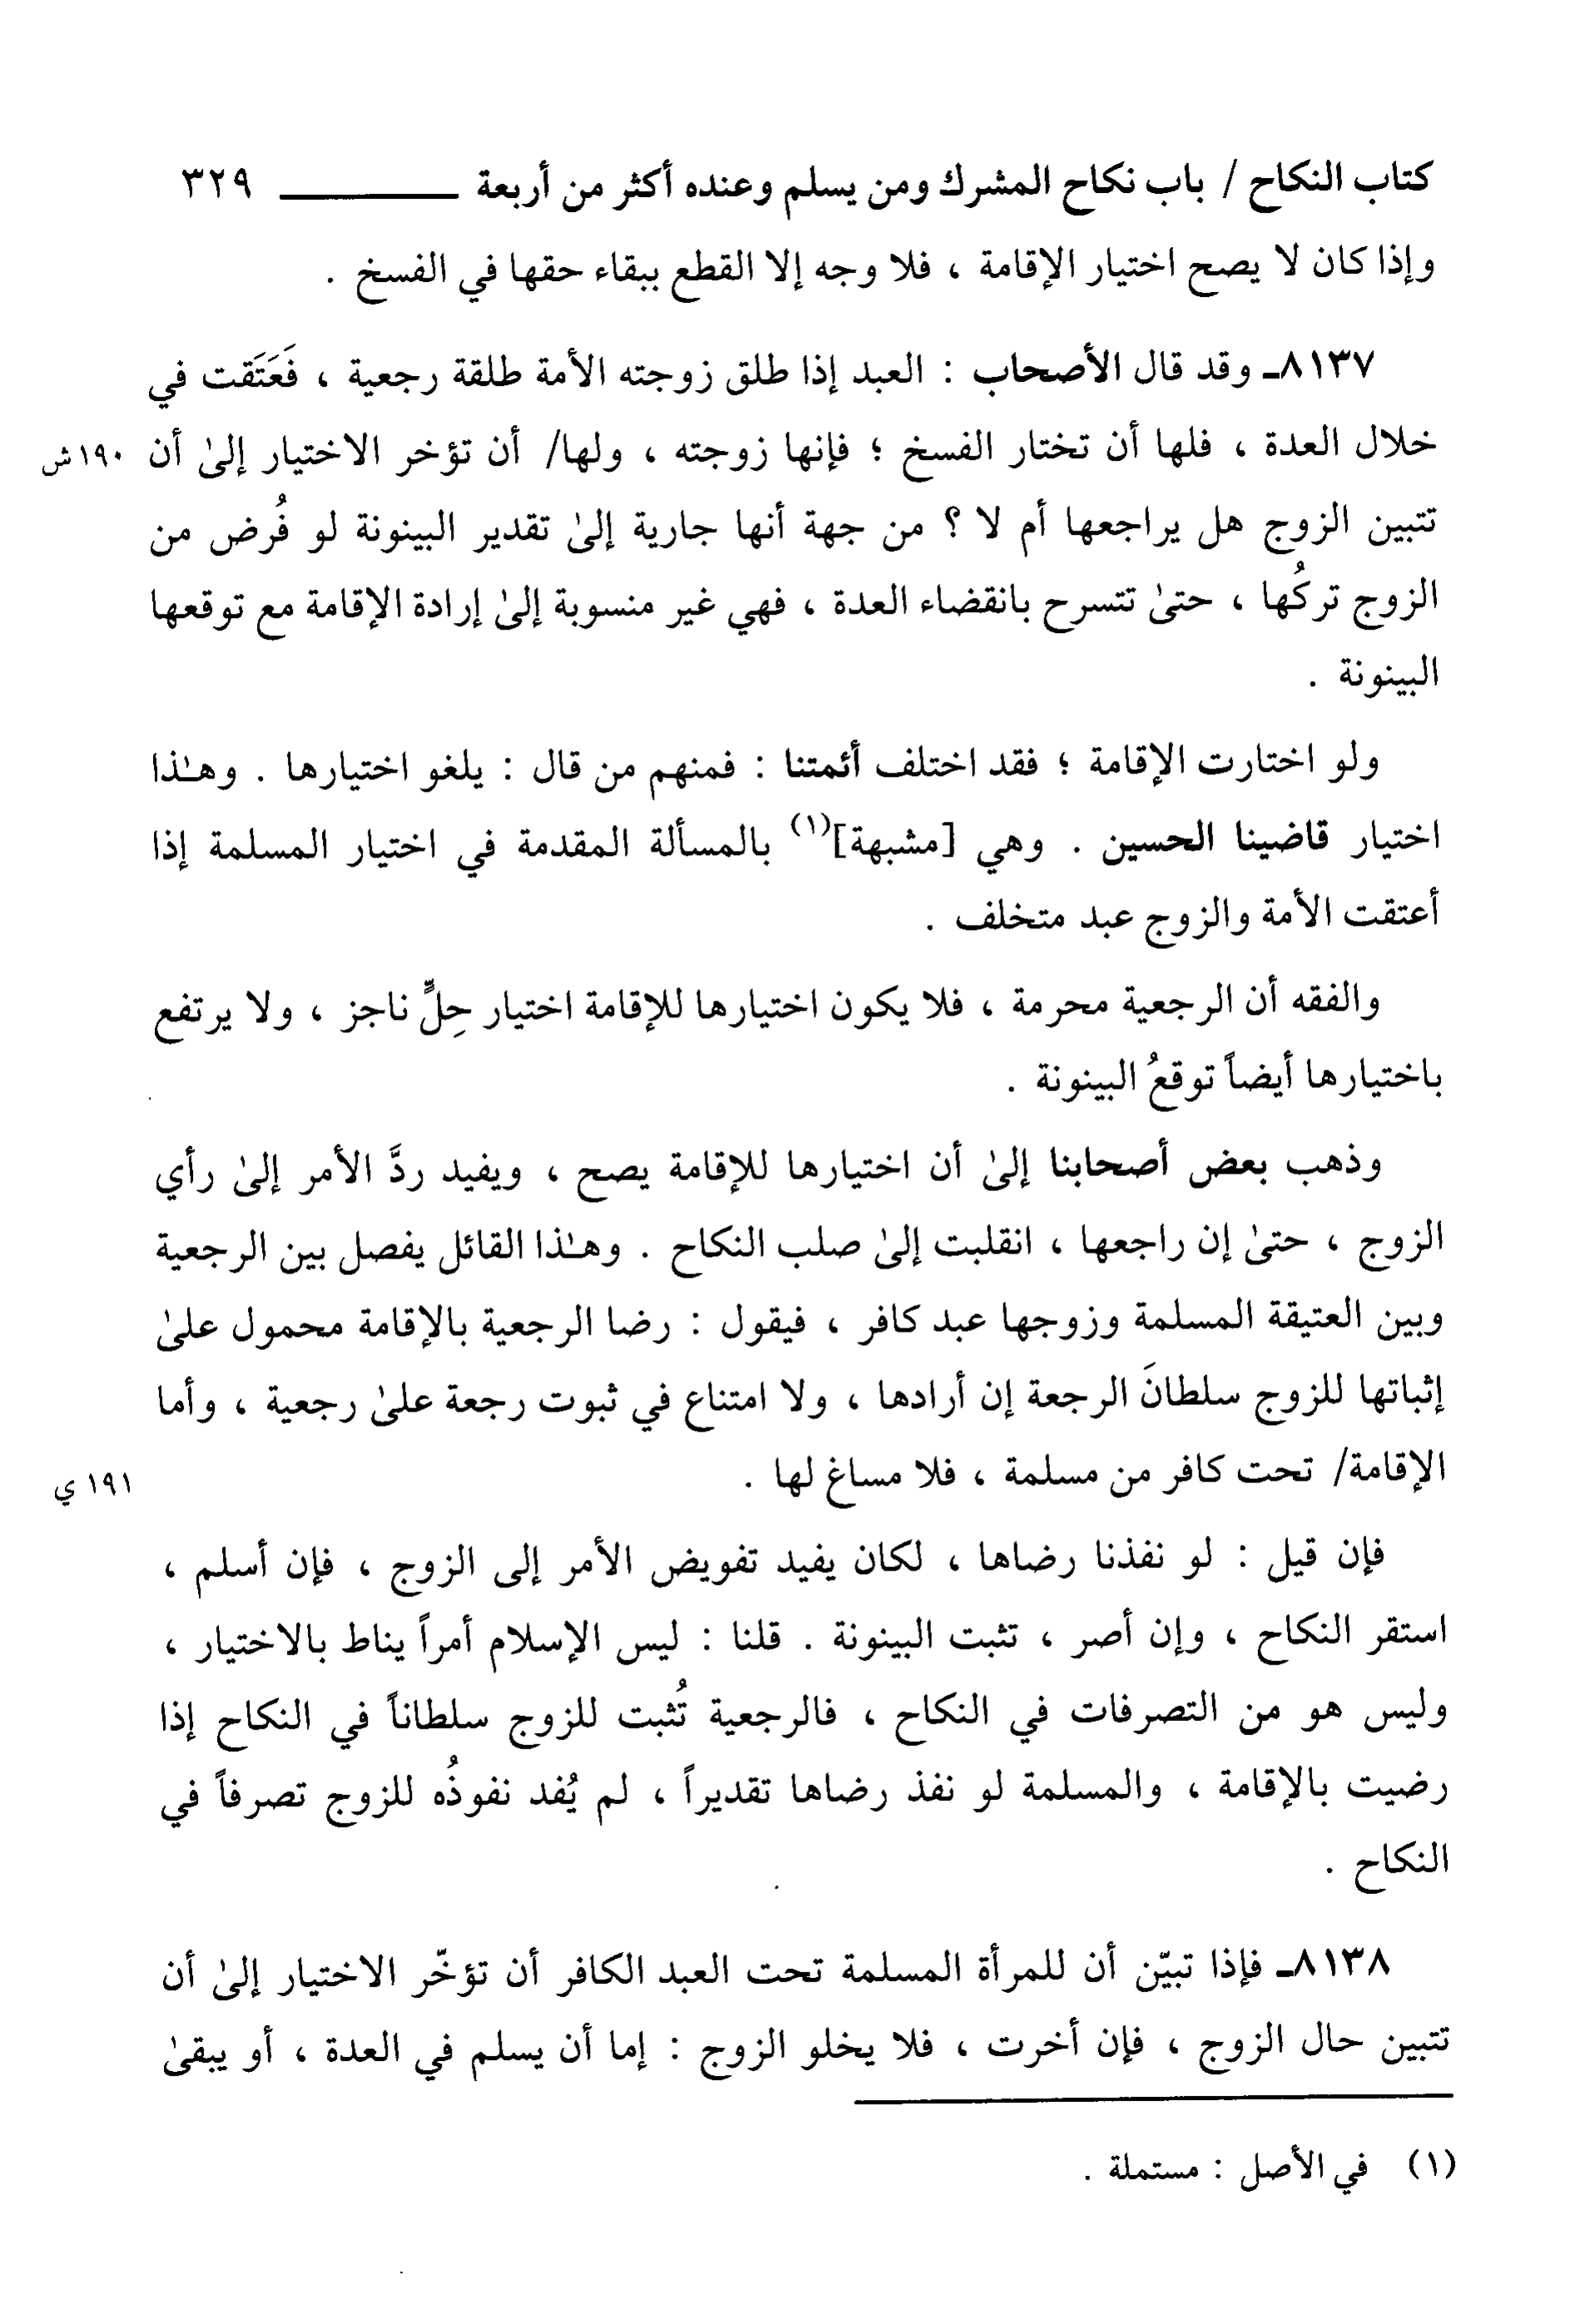 كتاب النكاح / باب نكاح المشرك ومن يسلم وعنده أكثر من أربعة ــــــــــ ٣٢٩
وإذا كان لا يصح اختيار الإقامة ، فلا وجه إلا القطع ببقاء حقها في الفسخ .
٨١٣٧ـ وقد قال الأصحاب : العبد إذا طلق زوجته الأمة طلقة رجعية ، فَعَتَقت في
خلال العدة ، فلها أن تختار الفسخ ؛ فإنها زوجته ، ولها/ أن تؤخر الاختيار إلىٰ أن ١٩٠ ش
تتبين الزوج هل يراجعها أم لا ؟ من جهة أنها جارية إلىٰ تقدير البينونة لو فُرض من
الزوج تركُها ، حتىٰ تتسرح بانقضاء العدة ، فهي غير منسوبة إلىٰ إرادة الإقامة مع توقعها
البينونة .
ولو اختارت الإقامة ؛ فقد اختلف أئمتنا : فمنهم من قال : يلغو اختيارها . وهـٰذا
اختيار قاضينا الحسين . وهي [مشبهة](١) بالمسألة المقدمة في اختيار المسلمة إذا
أعتقت الأمة والزوج عبد متخلف .
والفقه أن الرجعية محرمة ، فلا يكون اختيارها للإقامة اختيار حِلٍّ ناجز ، ولا يرتفع
باختيارها أيضاً توقعُ البينونة .
وذهب بعض أصحابنا إلىٰ أن اختيارها للإقامة يصح ، ويفيد ردَّ الأمر إلىٰ رأي
الزوج ، حتىٰ إن راجعها ، انقلبت إلىٰ صلب النكاح . وهـٰذا القائل يفصل بين الرجعية
وبين العتيقة المسلمة وزوجها عبد كافر ، فيقول : رضا الرجعية بالإقامة محمول علىٰ
إثباتها للزوج سلطانَ الرجعة إن أرادها ، ولا امتناع في ثبوت رجعة علىٰ رجعية ، وأما
الإقامة/ تحت كافر من مسلمة ، فلا مساغ لها . ١٩١ ي
فإن قيل : لو نفذنا رضاها ، لكان يفيد تفويض الأمر إلى الزوج ، فإن أسلم ،
استقر النكاح ، وإن أصر ، تثبت البينونة . قلنا : ليس الإسلام أمراً يناط بالاختيار ،
وليس هو من التصرفات في النكاح ، فالرجعية تُثبت للزوج سلطاناً في النكاح إذا
رضيت بالإقامة ، والمسلمة لو نفذ رضاها تقديراً ، لم يُفد نفوذُه للزوج تصرفاً في
النكاح .
٨١٣٨ـ فإذا تبيّن أن للمرأة المسلمة تحت العبد الكافر أن تؤخّر الاختيار إلىٰ أن
تتبين حال الزوج ، فإن أخرت ، فلا يخلو الزوج : إما أن يسلم في العدة ، أو يبقىٰ
(١) في الأصل : مستملة .